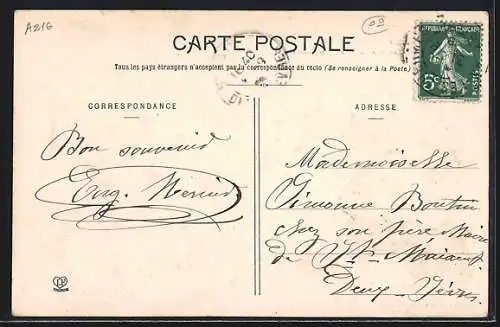 A216
CARTE POSTALE
Tous les pays étrangers n'acceptent pas la correspondance au recto (Se renseigner à la Poste)
RÉPUBLIQUE FRANÇAISE
5c
POSTES
CORRESPONDANCE
ADRESSE
Bon souvenir
Eug.
Mademoiselle
Simonne Boutin
chez son père Maire
de St Maixent
Deux-Sèvres